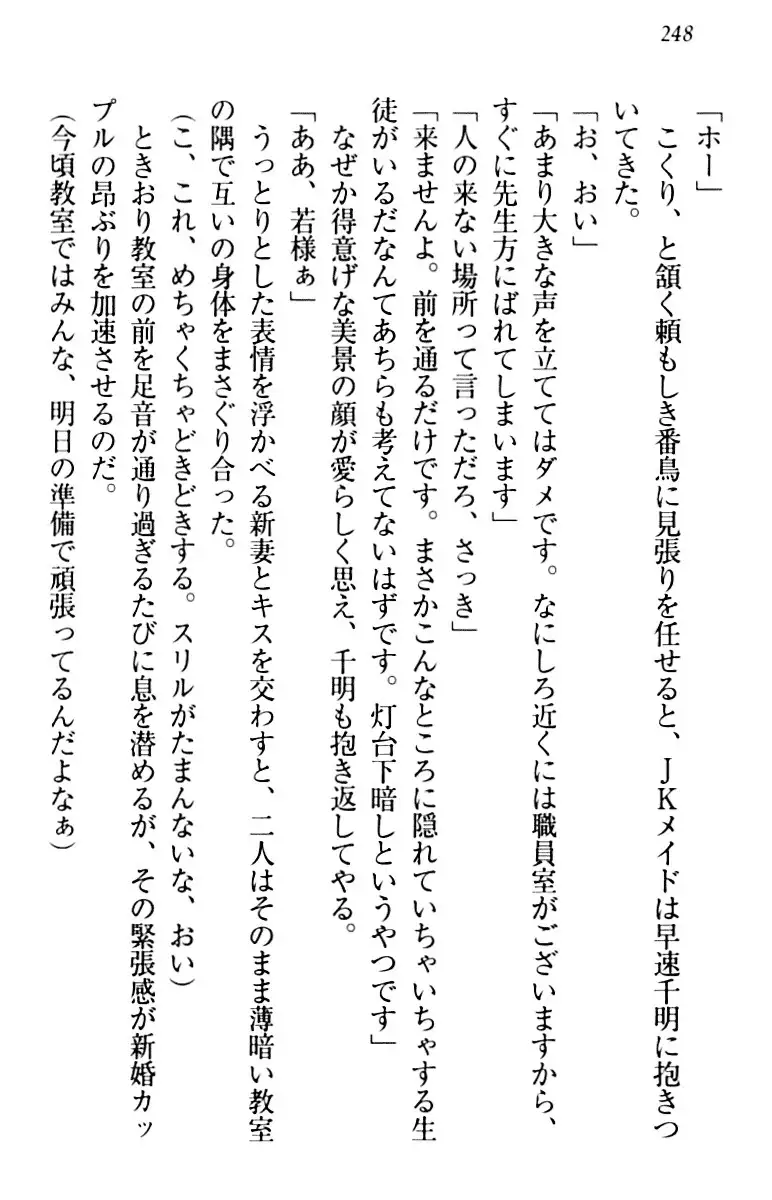 248
「ホー」
こくり、と頷く頼もしき番鳥に見張りを任せると、JKメイドは早速千明に抱きつ
いてきた。
「お、おい」
「あまり大きな声を立ててはダメです。なにしろ近くには職員室がございますから、
すぐに先生方にばれてしまいます」
「人の来ない場所って言っただろ、さっき」
「来ませんよ。前を通るだけです。まさかこんなところに隠れていちゃいちゃする生
徒がいるだなんてあちらも考えてないはずです。灯台下暗しというやつです」
なぜか得意げな美景の顔が愛らしく思え、千明も抱き返してやる。
「ああ、若様ぁ」
うっとりとした表情を浮かべる新妻とキスを交わすと、二人はそのまま薄暗い教室
の隅で互いの身体をまさぐり合った。
(こ、これ、めちゃくちゃどきどきする。スリルがたまんないな、おい)
ときおり教室の前を足音が通り過ぎるたびに息を潜めるが、その緊張感が新婚カッ
プルの昂ぶりを加速させるのだ。
(今頃教室ではみんな、明日の準備で頑張ってるんだよなぁ)